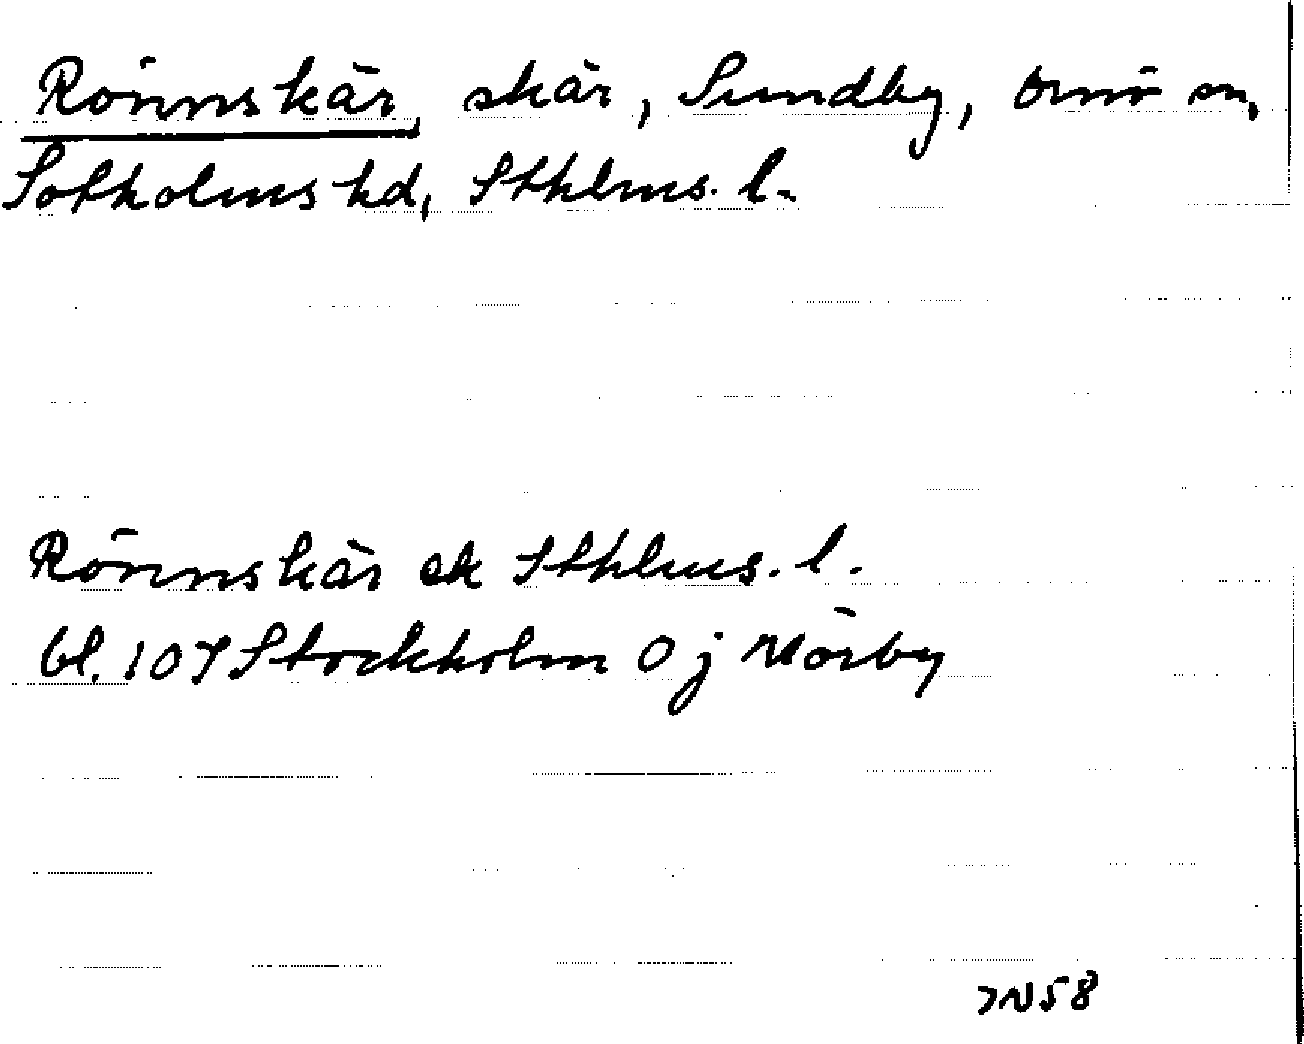 Rönnskär, skär, Sundby, Ornö sn,
Sotholms hd, Sthlms. l.
Rönnskär ek Sthlms. l.
bl. 107 Stockholm O j Mörby
JN58